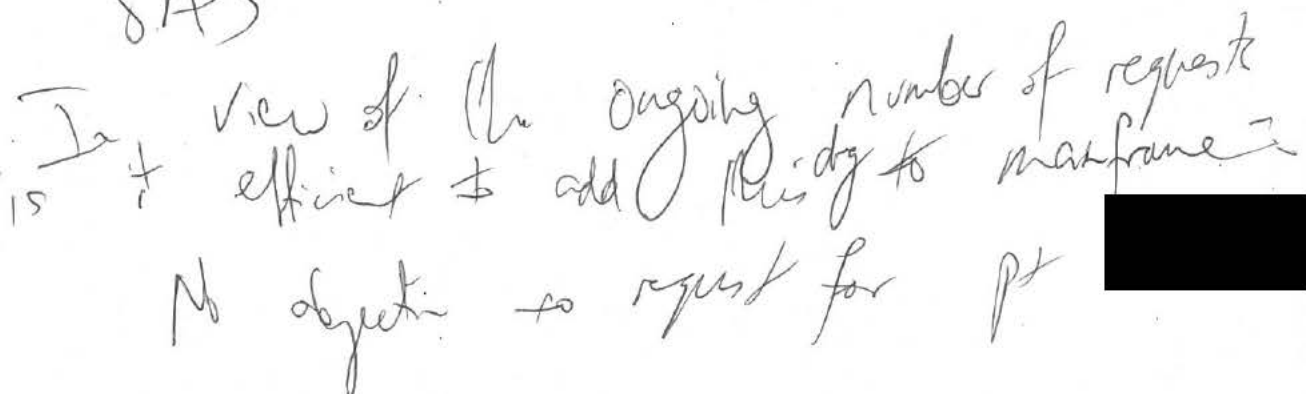 SAS
In view of the ongoing number of requests
is it efficient to add this drg to mainframe?
No objection to request for pt